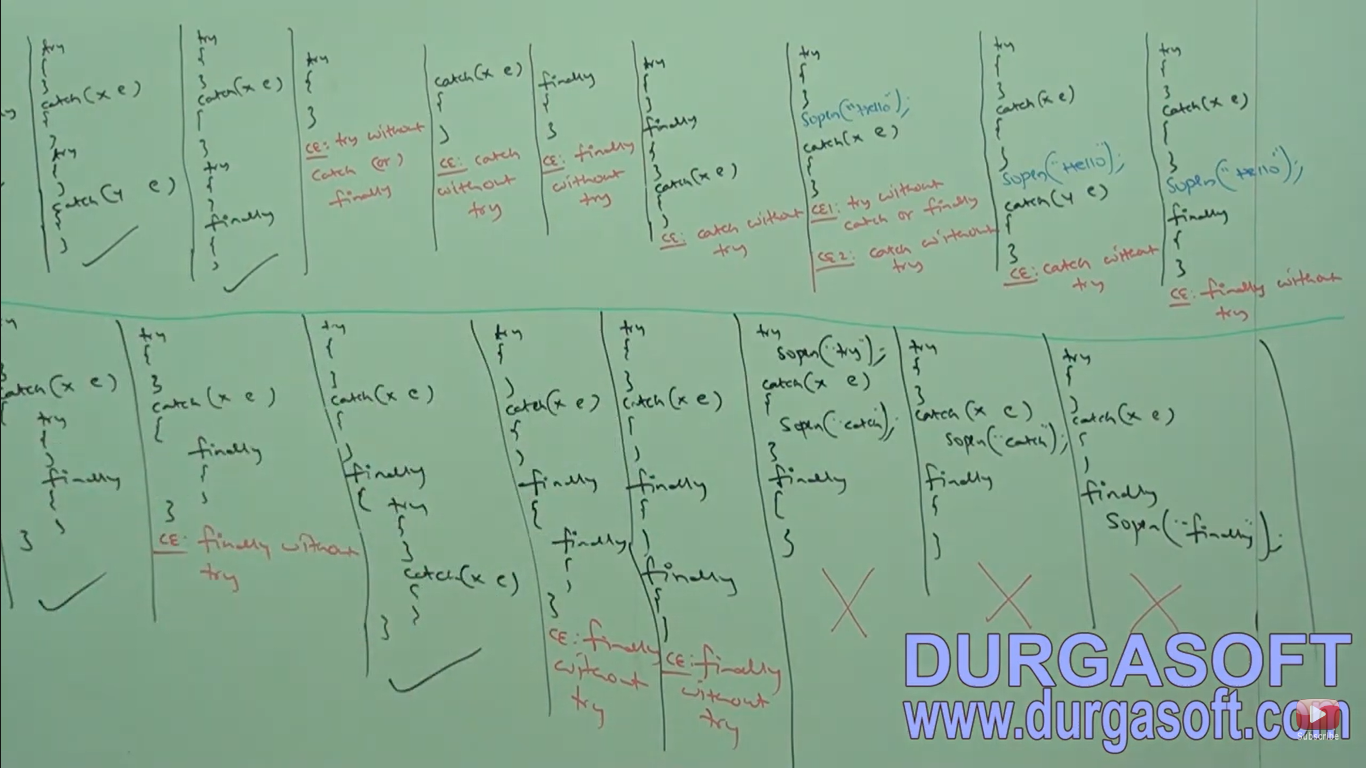 try
{
}
catch(x e)
{
}
try
{
}
catch(y e)
{
}
try
{
}
catch(x e)
{
}
try
{
}
finally
{
}
try
{
}
CE: try without
catch (or)
finally
catch(x e)
{
}
CE: catch
without
try
finally
{
}
CE: finally
without
try
try
{
}
finally
{
}
catch(x e)
{
}
CE: catch without
try
try
{
}
sopln("Hello");
catch(x e)
{
}
CE1: try without
catch or finally
CE2: catch without
try
try
{
}
catch(x e)
{
}
sopln("Hello");
catch(y e)
{
}
CE: catch without
try
try
{
}
catch(x e)
{
}
sopln("Hello");
finally
{
}
CE: finally without
try
catch(x e)
{
try
{
}
finally
{
}
}
try
{
}
catch(x e)
{
finally
{
}
}
CE: finally without
try
try
{
}
catch(x e)
{
}
finally
{
try
{
}
catch(x e)
{
}
}
try
{
}
catch(x e)
{
}
finally
{
finally
{
}
}
CE: finally
without
try
try
{
}
catch(x e)
{
}
finally
{
}
finally
{
}
CE: finally
without
try
try
sopln("try");
catch(x e)
{
sopln("catch");
}
finally
{
}
try
{
}
catch(x e)
sopln("catch");
finally
{
}
try
{
}
catch(x e)
{
}
finally
sopln("finally");
DURGASOFT
www.durgasoft.com
Subscribe